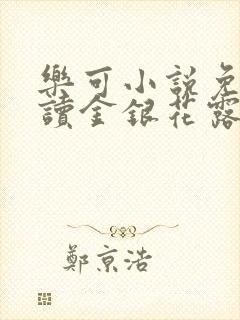 樂可小說免
讀金銀花露
鄭京浩